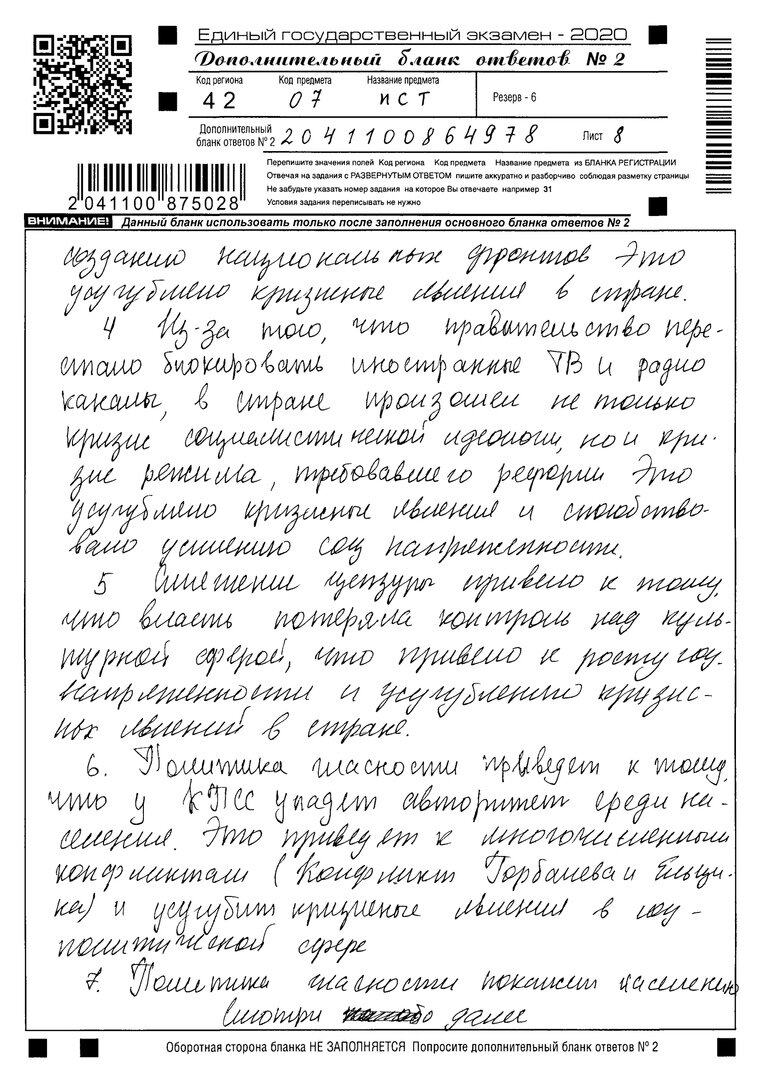 Единый государственный экзамен - 2020
Дополнительный бланк ответов № 2
Код региона Код предмета Название предмета
42 07 ИСТ Резерв - 6
Дополнительный бланк ответов № 2 2041100864978 Лист 8
Перепишите значения полей Код региона Код предмета Название предмета из БЛАНКА РЕГИСТРАЦИИ
Отвечая на задания с РАЗВЕРНУТЫМ ОТВЕТОМ пишите аккуратно и разборчиво соблюдая разметку страницы
Не забудьте указать номер задания на которое Вы отвечаете например 31
Условия задания переписывать не нужно
2041100 875028
ВНИМАНИЕ! Данный бланк использовать только после заполнения основного бланка ответов № 2
созданию национальных фронтов Это
усугубляло кризисные явления в стране.
4 Из-за того, что правительство пере-
стало блокировать иностранные ТВ и радио
каналы, в стране произошел не только
кризис социалистической идеологи, но и кри-
зис режима, требовавшего реформ Это
усугубляло кризисные явления и способство-
вало усилению соц напряженности.
5 Смягчение цензуры привело к тому,
что власть потеряла контроль над куль-
турной сферой, что привело к росту соц.
напряженности и усугублению кризис-
ных явлений в стране.
6. Политика гласности приведет к тому,
что у КПСС упадет авторитет среди на-
селения. Это приведет к многочисленным
конфликтам (Конфликт Горбачева и Ельци-
на) и усугубит кризисные явления в соц-
политической сфере
7. Политика гласности покажет населению
Смотри далее
Оборотная сторона бланка НЕ ЗАПОЛНЯЕТСЯ Попросите дополнительный бланк ответов № 2